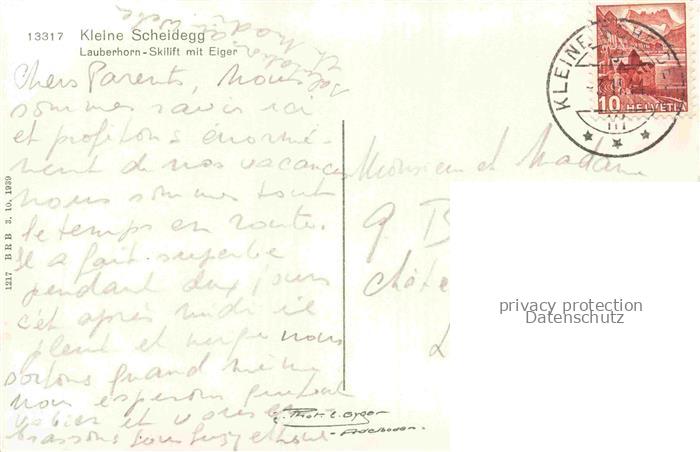 13317 Kleine Scheidegg
Lauberhorn-Skilift mit Eiger
Chers Parents, Nous
sommes ravis ici
et profitons énormé-
ment de nos vacances
nous sommes tout
le temps en route.
Il a fait superbe
pendant deux jours
cet après midi il
pleut et neige nous
sortons quand même
nous espérons
et vous
brassons
1217 BRB 3. 10. 1939
Monsieur et Madame
9. B
Châte
Phot. E. Gyger
Adelboden.
KLEINE SCHEIDEGG
10 HELVETIA
privacy protection
Datenschutz